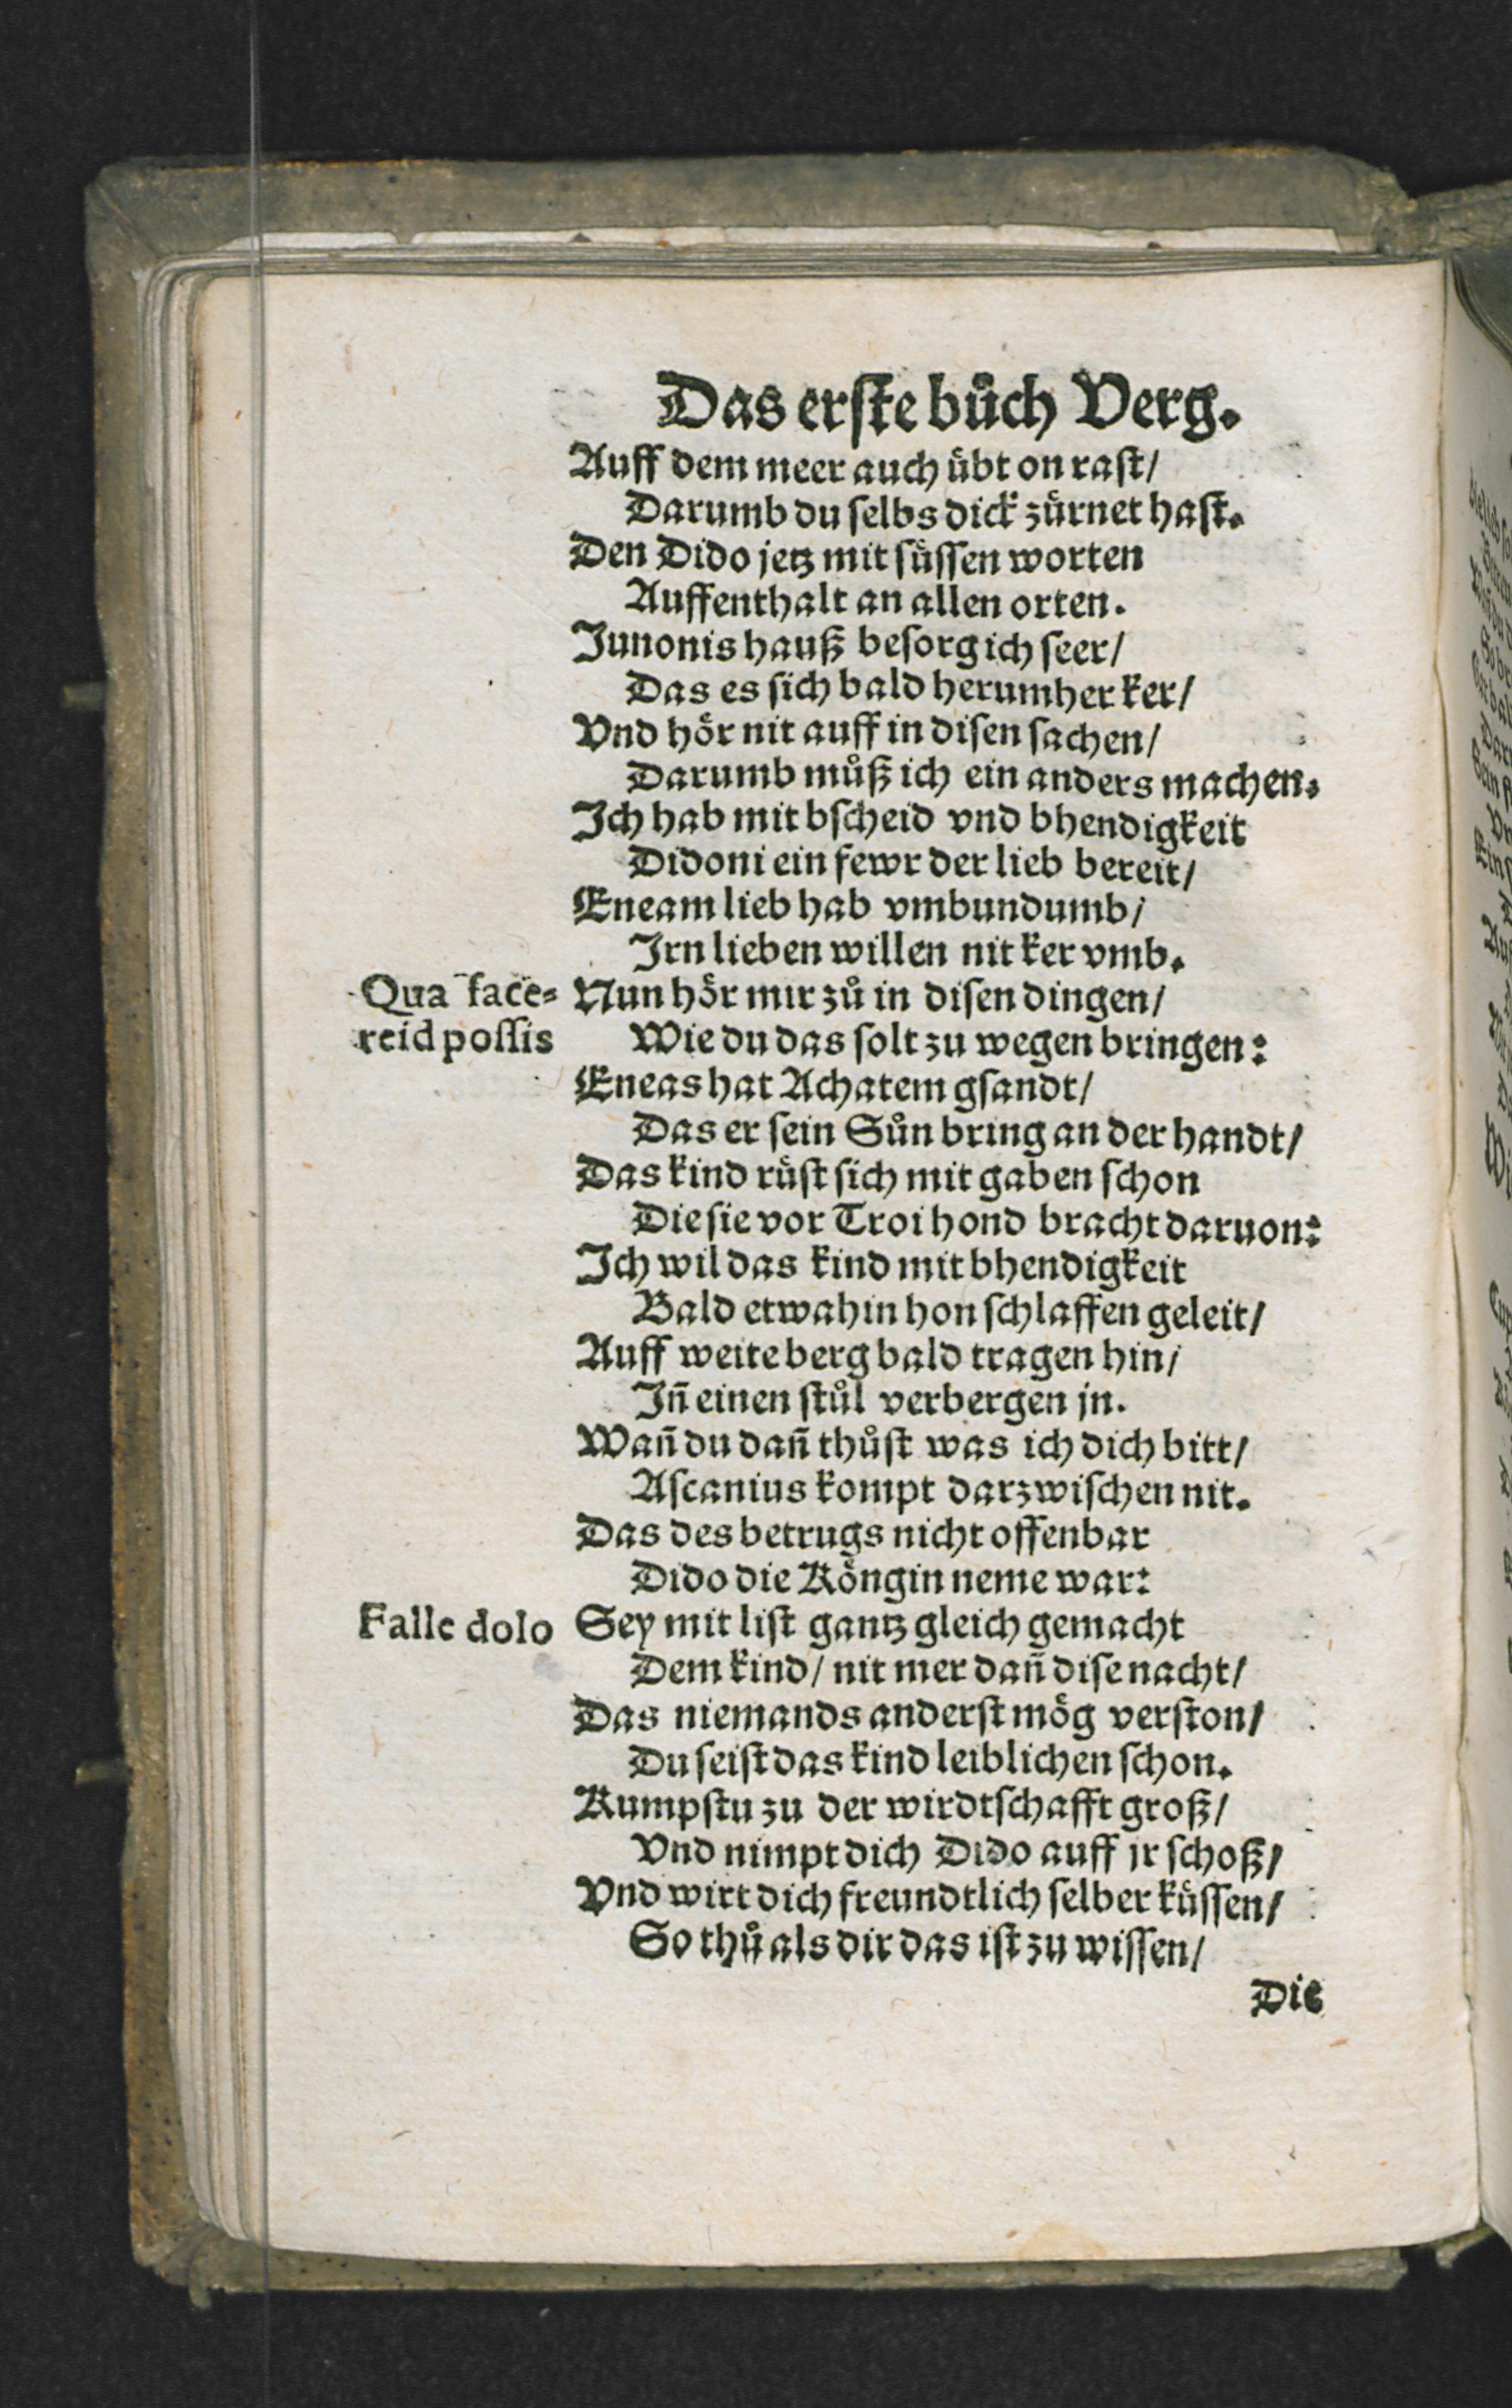 Das erste bůch Verg.
Auff dem meer auch uͤbt on rast/
Darumb du selbs dick zuͤrnet hast.
Den Dido jetz mit suͤssen worten
Auffenthalt an allen orten.
Junonis hauß besorg ich seer/
Das es sich bald herumher ker/
Vnd hoͤr nit auff in disen sachen/
Darumb můß ich ein anders machen.
Ich hab mit bscheid vnd bhendigkeit
Didoni ein fewr der lieb bereit/
Eneam lieb hab vmbundumb/
Irn lieben willen nit ker vmb.
Qua face=
reid possis
Nun hoͤr mir zů in disen dingen/
Wie du das solt zu wegen bringen:
Eneas hat Achatem gsandt/
Das er sein Sůn bring an der handt/
Das kind ruͤst sich mit gaben schon
Die sie vor Troi hond bracht daruon:
Ich wil das kind mit bhendigkeit
Bald etwahin hon schlaffen geleit/
Auff weite berg bald tragen hin/
Iñ einen stůl verbergen jn.
Wañ du dañ thůst was ich dich bitt/
Ascanius kompt darzwischen nit.
Das des betrugs nicht offenbar
Dido die Koͤngin neme war:
Falle dolo
Sey mit list gantz gleich gemacht
Dem kind/ nit mer dañ dise nacht/
Das niemands anderst moͤg verston/
Du seist das kind leiblichen schon.
Kumpstu zu der wirdtschafft groß/
Vnd nimpt dich Dido auff jr schoß/
Vnd wirt dich freundtlich selber kuͤssen/
So thů als dir das ist zu wissen/
Die